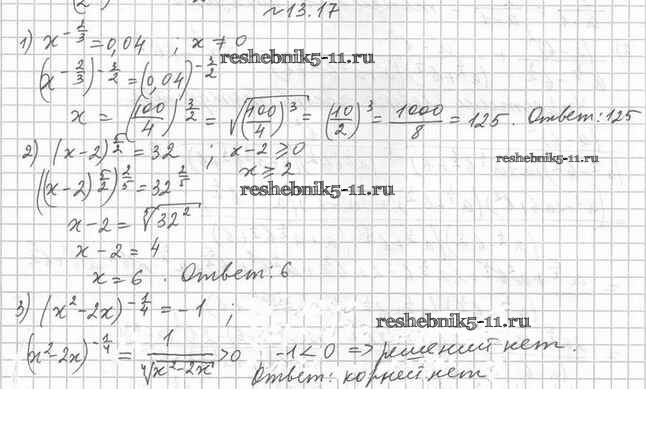 №13.17
1) x^{-2/3} = 0,04 ; x ≠ 0
reshebnik5-11.ru
(x^{-2/3})^{-3/2} = (0,04)^{-3/2}
x = (100/4)^{3/2} = √((100/4)^3) = (10/2)^3 = 1000/8 = 125. Ответ: 125
2) (x-2)^{5/2} = 32 ; x-2 ≥ 0
reshebnik5-11.ru
x ≥ 2
((x-2)^{5/2})^{2/5} = 32^{2/5}
reshebnik5-11.ru
x-2 = ⁵√(32²)
x-2 = 4
x = 6 . Ответ: 6
3) (x²-2x)^{-1/4} = -1 ;
reshebnik5-11.ru
(x²-2x)^{-1/4} = 1/⁴√(x²-2x) > 0 -1 < 0 => решений нет.
Ответ: корней нет